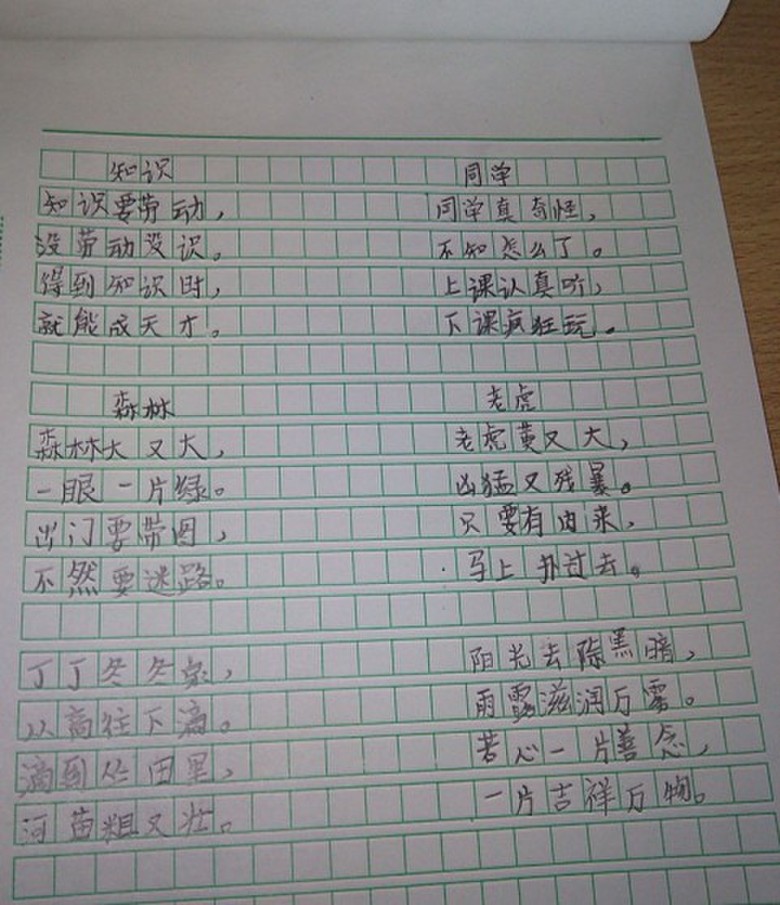 知识
知识要劳动，
没劳动没识。
得到知识时，
就能成天才。
同学
同学真奇怪，
不知怎么了。
上课认真听，
下课疯狂玩。
森林
森林大又大，
一眼一片绿。
出门要带图，
不然要迷路。
老虎
老虎黄又大，
凶猛又残暴。
只要有肉来，
马上扑过去。
丁丁冬冬泉，
从高往下滴。
滴到田里，
河苗粗又壮。
阳光去除黑暗，
雨露滋润万
若心一片善念，
一片吉祥万物。